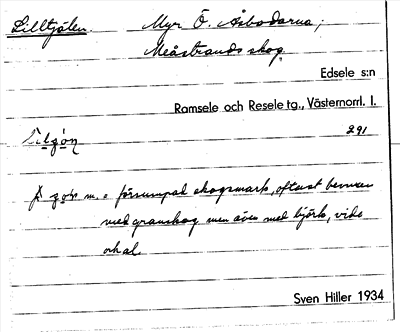 Lilltjálen. Myr Ö. Åsbodarna,
Meåstrands skog.
Edsele s:n
Ramsele och Resele tg., Västernorrl. l.
291
m. = försumpad skogsmark, oftast bevuxen
med granskog men även med björk, vide
och al.
Sven Hiller 1934